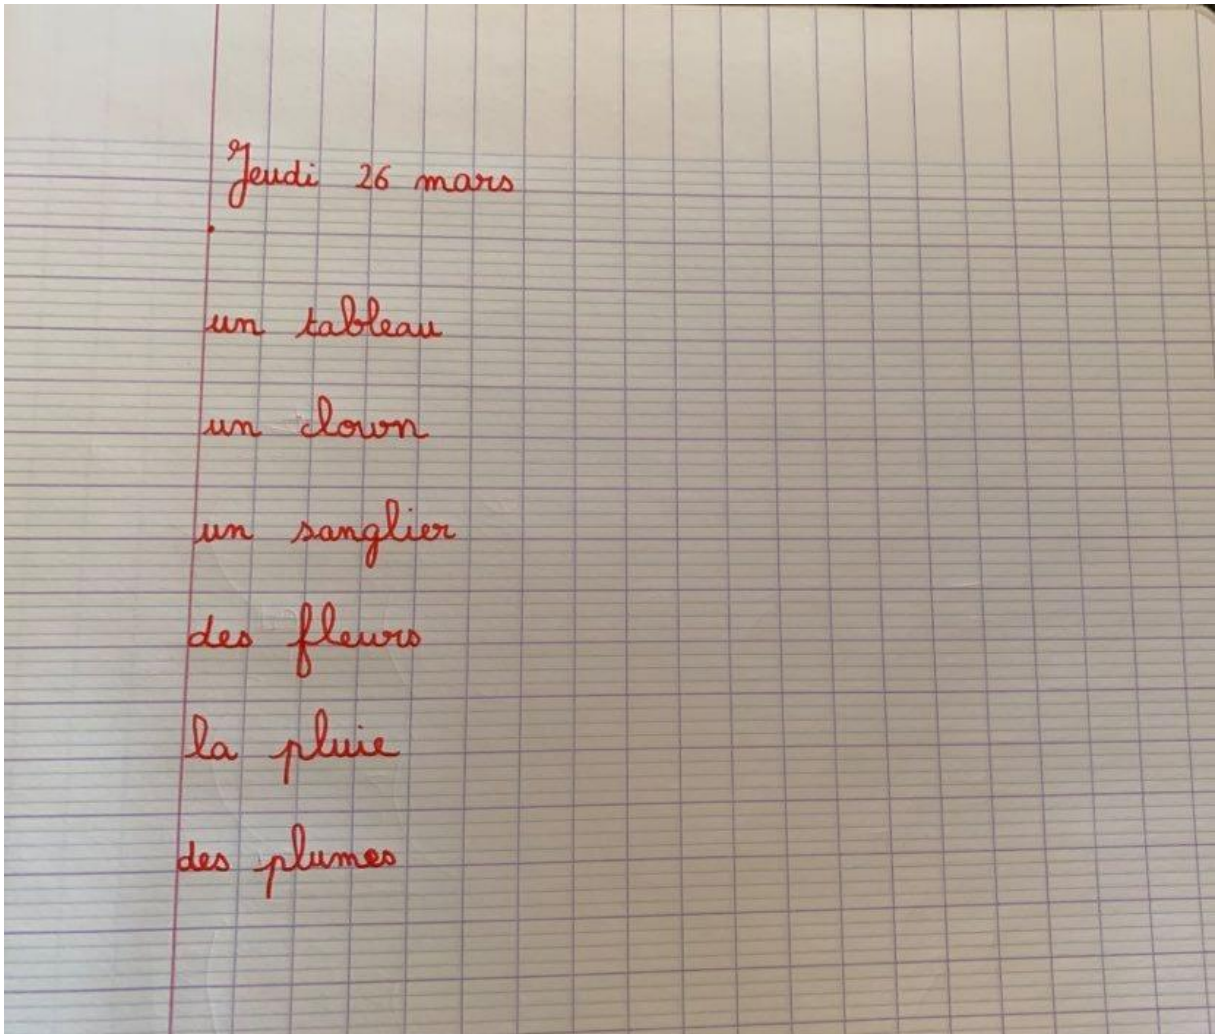 Jeudi 26 mars
un tableau
un clown
un sanglier
des fleurs
la pluie
des plumes